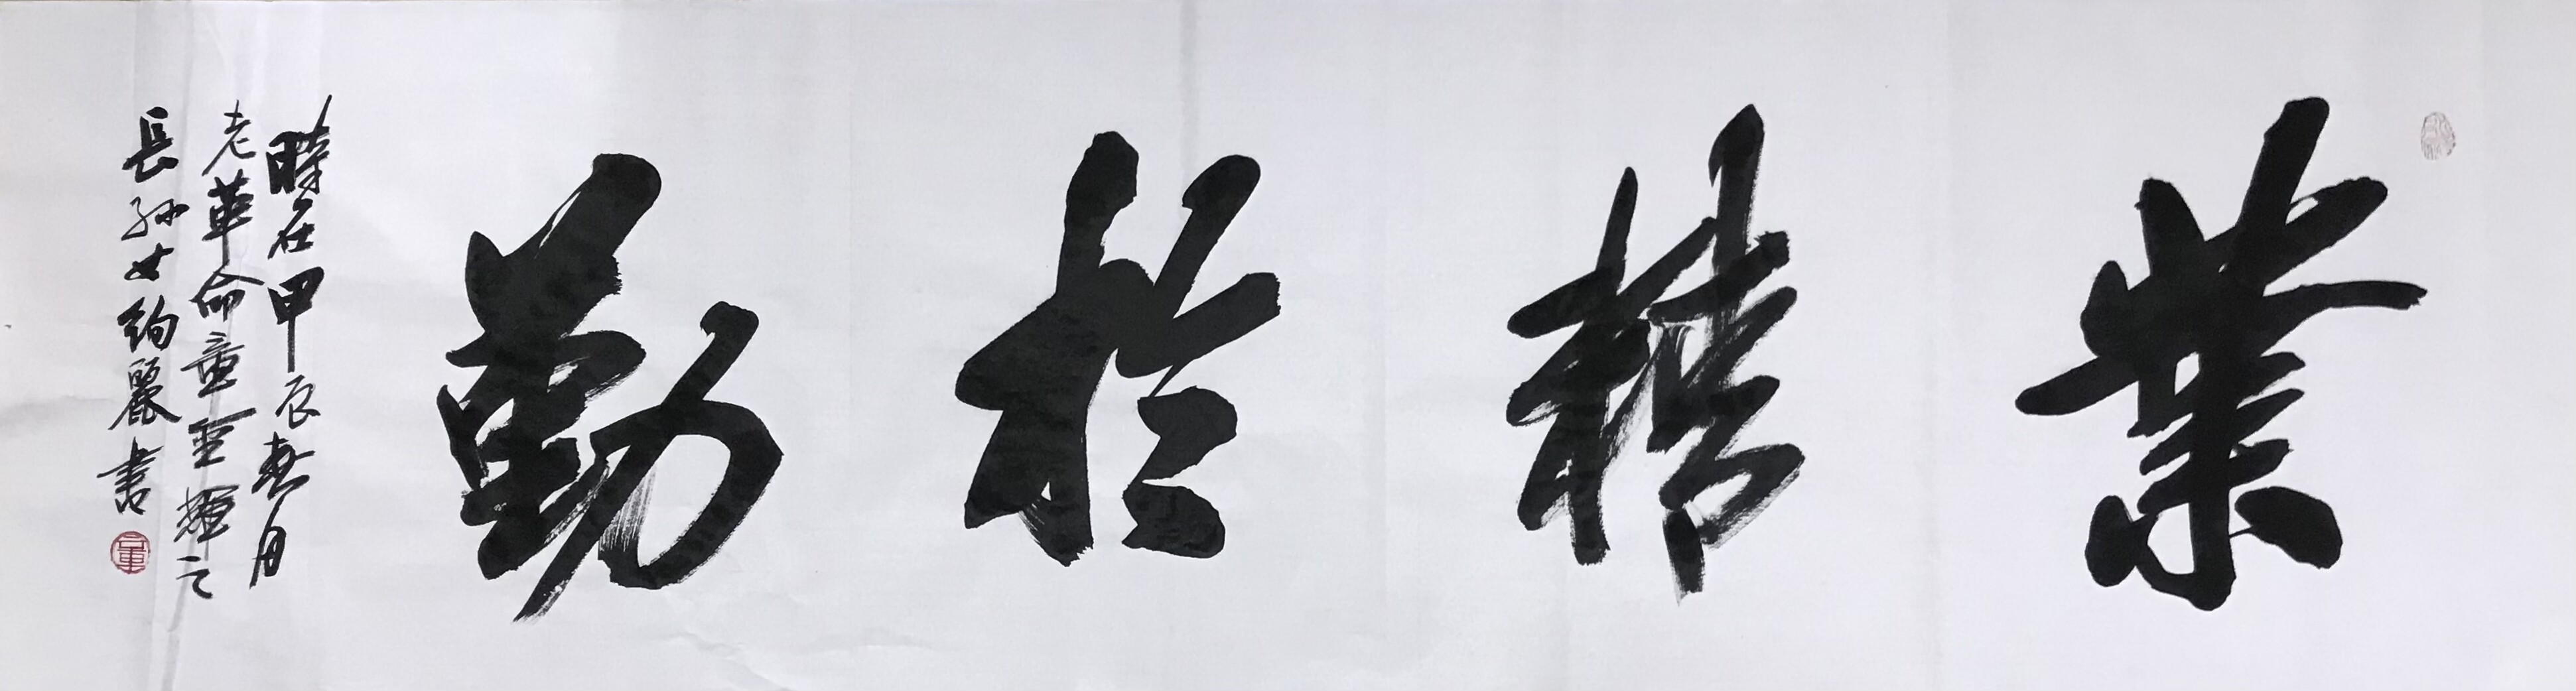 業精於勤
時在甲辰春月
老革命童聖輝之
長孫女絢麗書
童